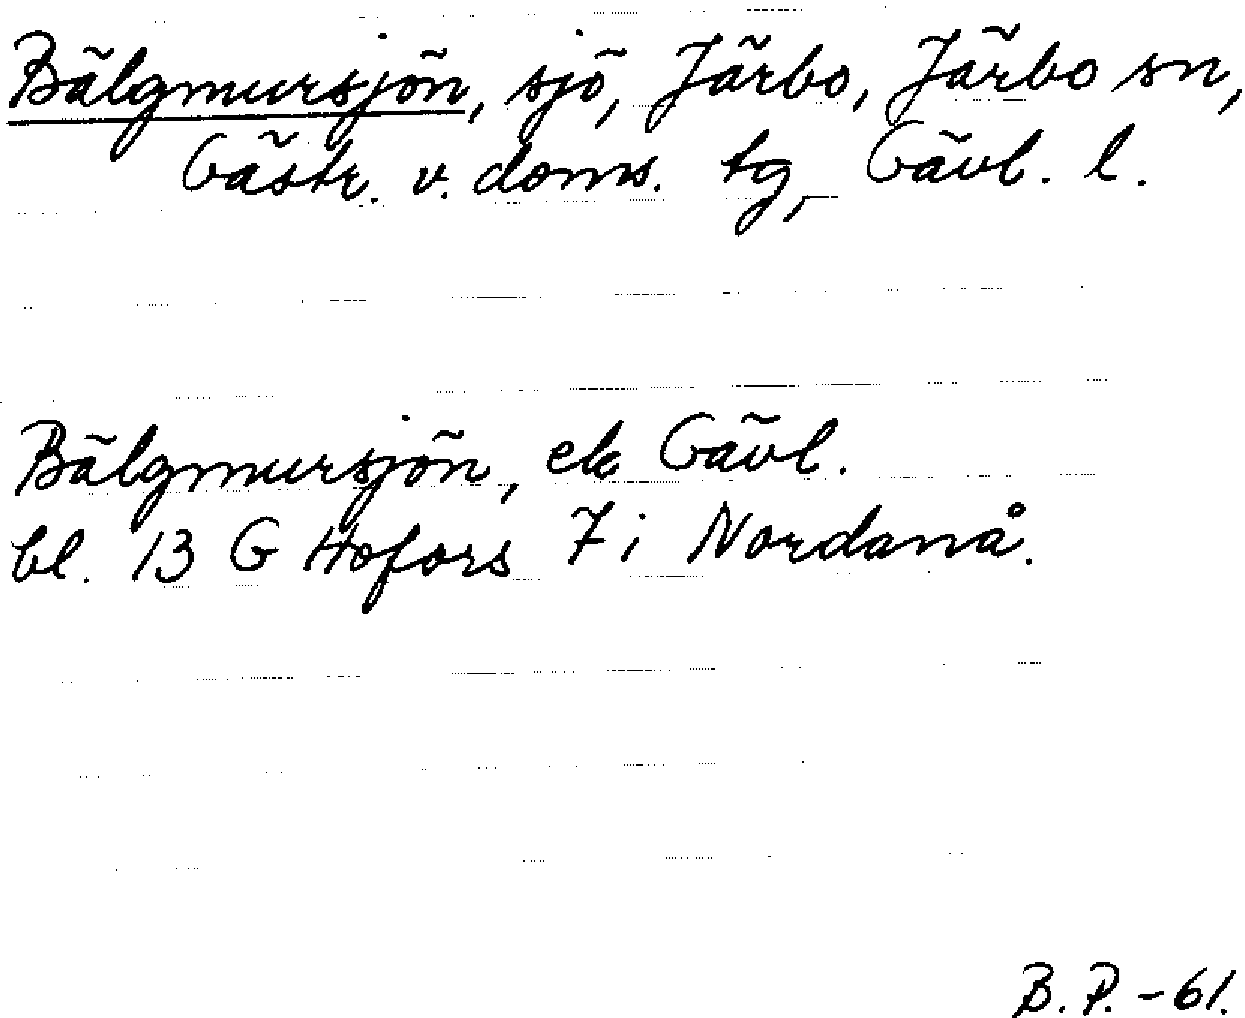 Bälgmursjön, sjö, Järbo, Järbo sn,
Gästr. v. doms. tg, Gävl. l.
Bälgmursjön, ek Gävl.
bl. 13 G Hofors 7 i Nordanå.
B. P. - 61.